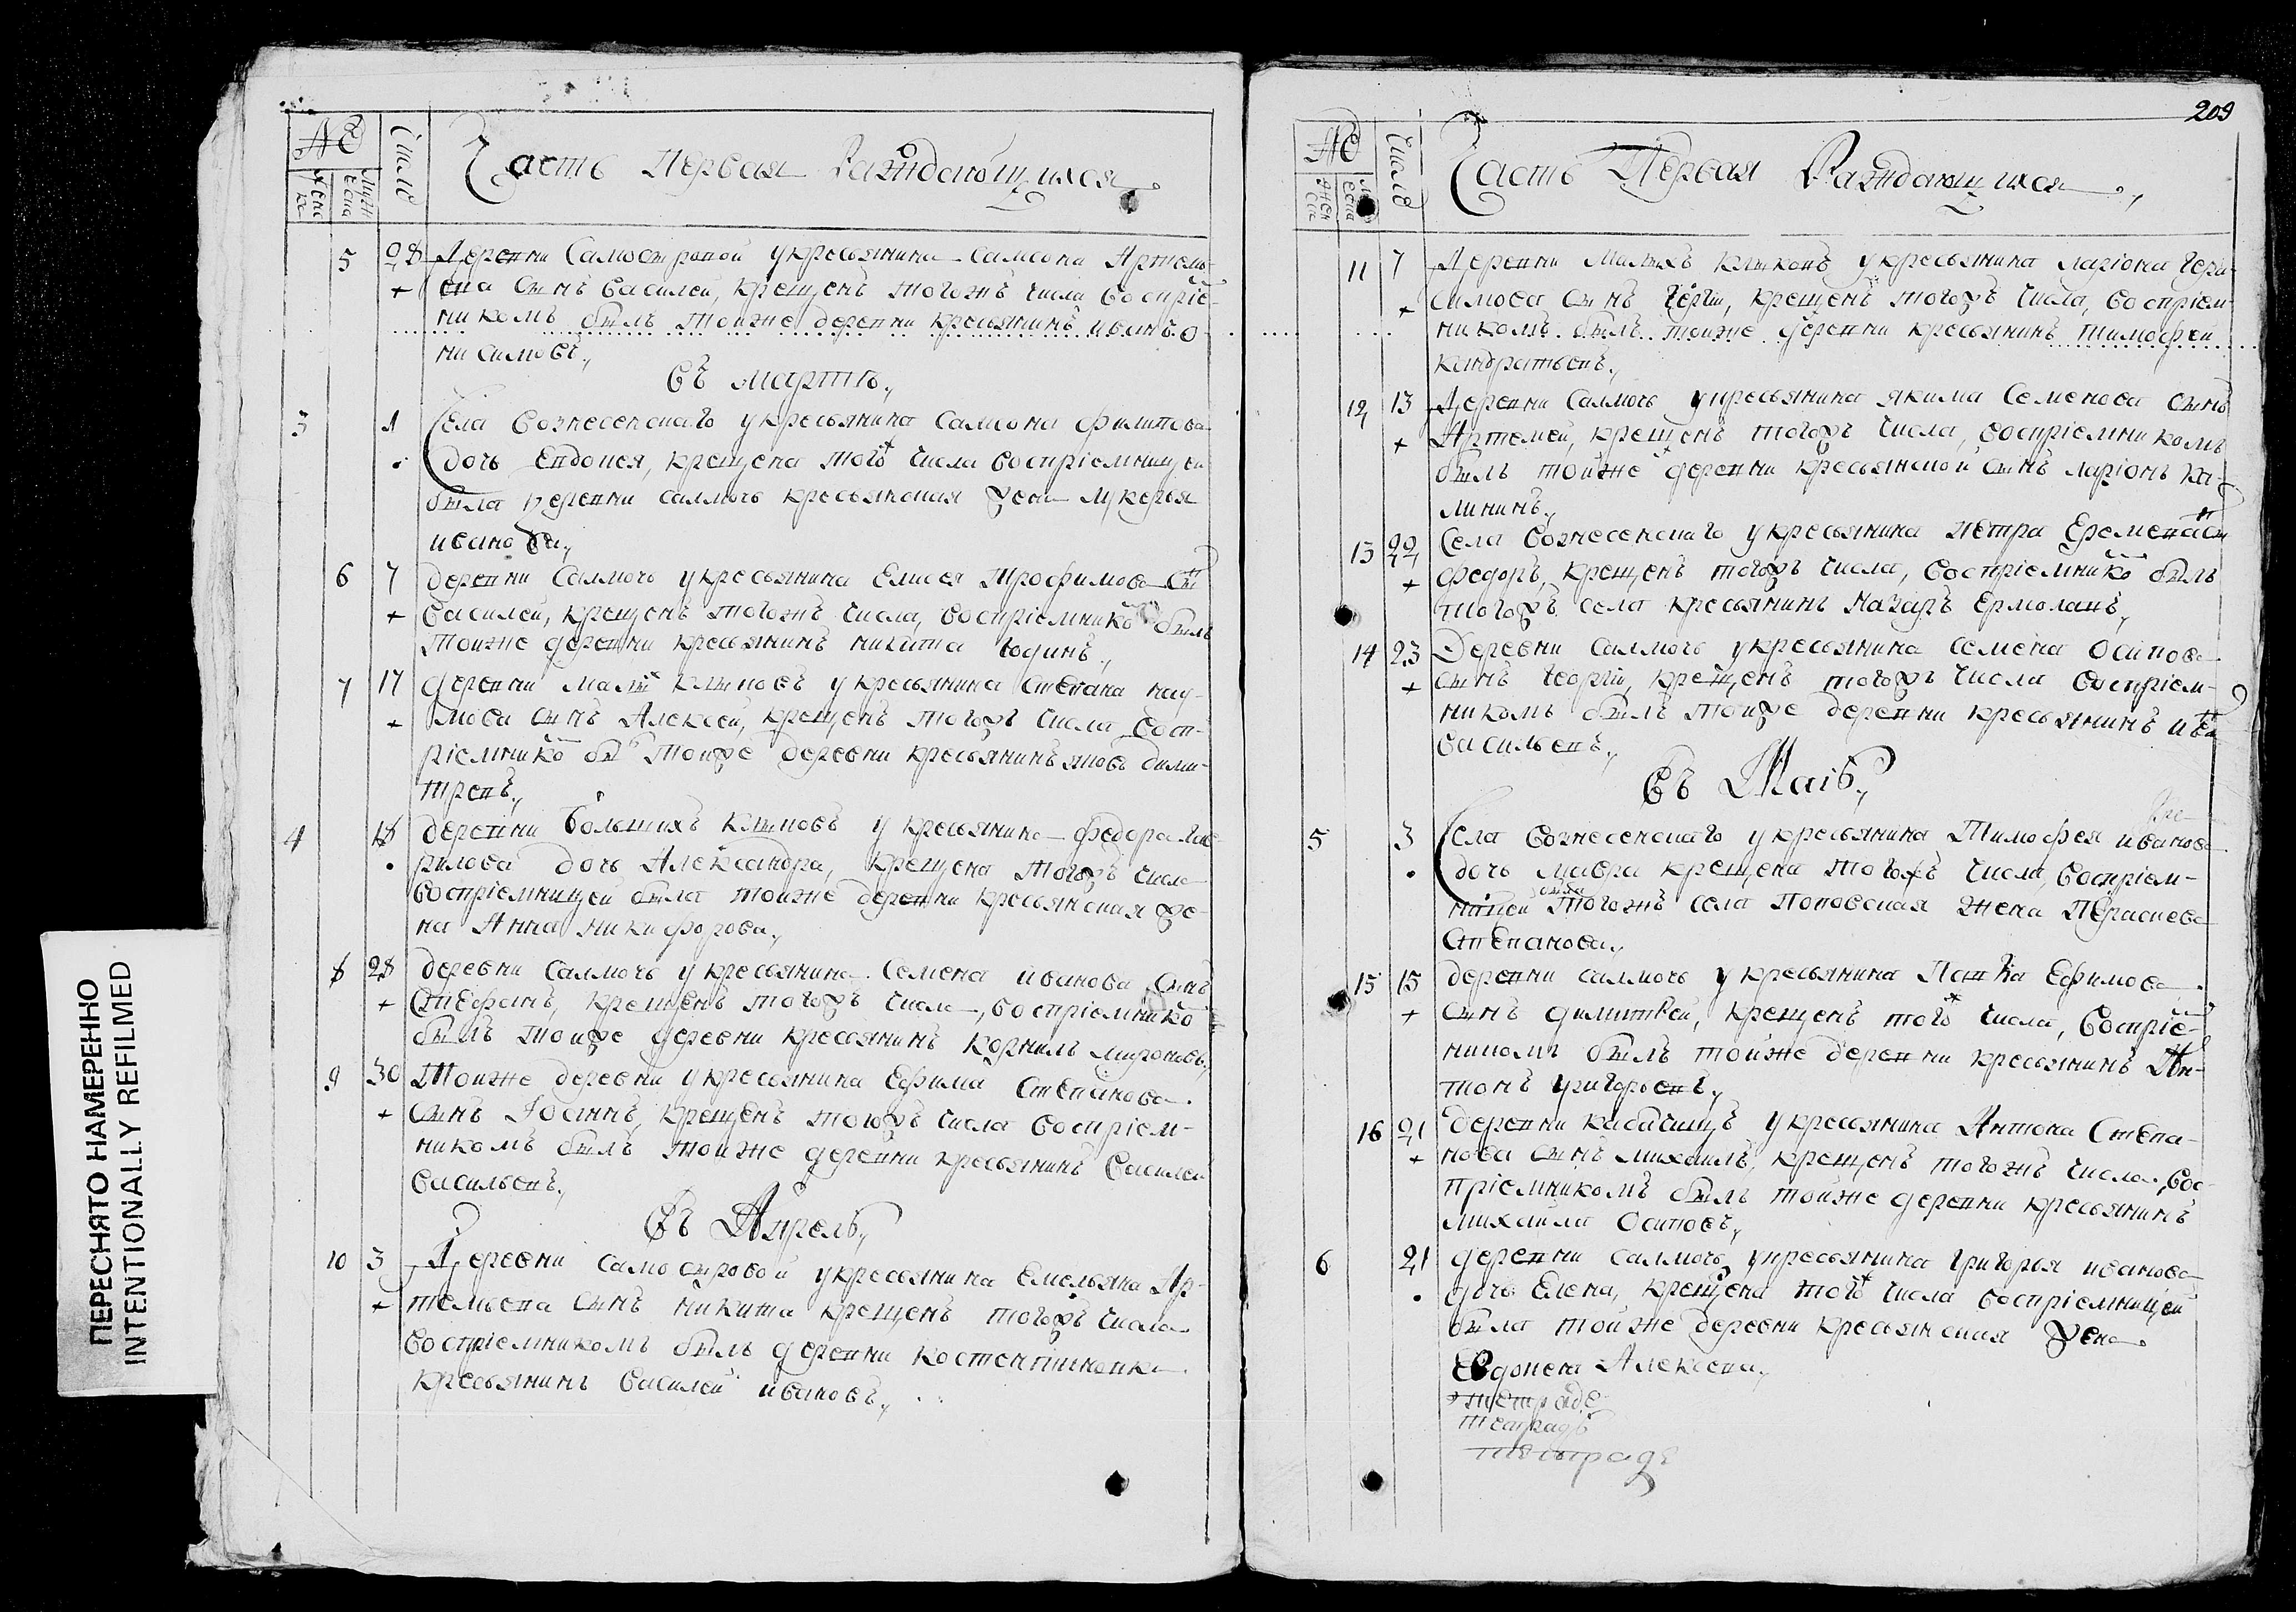 209
№
Число
Женска
Мужеска
Часть Первая Раждающихся
5 28 Деревни Самостровой у кресьянина Самсона Артемь-
ева сынъ Василей, крещенъ тогожъ числа Восприем-
никомъ былъ тойже деревни кресьянинъ иванъ о-
нисимовъ,
въ мартѣ,
3 1 Села Вознесенскаго у кресьянина Самсона филипова
дочь Евдокея, крещена тогож числа восприемницей
была деревни салмочь кресьянская жена лукерья
иванова,
6 7 деревни Салмочь у кресьянина Елисея Трофимова сн
Василей, крещенъ тогожъ числа, восприемнико былъ
тойже деревни кресьянинъ никита юдинъ,
7 17 деревни малых клыковъ у кресьянина Степана нау-
мова сынъ Алексей, крещенъ тогожъ числа восп-
риемнико бы тойже деревни кресьянинъ яковъ дими-
тревъ,
4 18 деревни большихъ клыковъ у кресьянина федора
рилова дочь Александра, крещена тогожъ числа
восприемницей была тойже деревни кресьянская же-
на Анна никифорова,
8 28 деревни Салмочь у кресьянина Семена иванова сынъ
Стефанъ, крещенъ тогожъ числа, восприемнико
былъ тойже деревни кресьянинъ корнилъ мироновъ,
9 30 Тойже деревни у кресьянина Ефима Степанова
сынъ Иоаннъ, крещенъ тогожъ числа восприем-
никомъ былъ тойже деревни кресьянинъ василей
васильевъ,
Въ Апрель,
10 3 Деревни самостровой у кресьянина Емельяна Ар-
темьева сынъ никита крещенъ тогожъ числа
восприемникомъ былъ деревни
кресьянинъ василей ивановъ,
№
Число
Часть Первая Раждающихся,
11 7 Деревни малыхъ клыковъ у кресьянина лариона гера-
симова сынъ крещенъ тогожъ числа, восприем-
никомъ былъ тойже деревни кресьянинъ тимофей
кандратьевъ,
12 13 Деревни Салмочь у кресьянина якима Семенова сынъ
Артемей, крещенъ тогожъ числа, восприемникомъ
былъ тойже деревни кресьянской сынъ ларионъ ка-
лининъ,
13 22 Села вознесенскаго у кресьянина петра Еремеева сн
федоръ, крещенъ тогожъ числа, восприемнико былъ
тогожъ села кресьянинъ назаръ ермолаевъ,
14 23 Деревни салмочь у кресьянина семена осипова
сынъ георгий, крещенъ тогожъ числа восприем-
никомъ былъ тойже деревни кресьянинъ иван
васильевъ,
въ Маiѣ,
5 3 Села вознесенскаго у кресьянина Тимофея иванова
дочь мавра крещена тогожъ числа, восприем-
ницей была тогожъ села поповская жена Параскева
Степанова,
15 15 деревни салмочь у кресьянина Ефимова
сынъ димитрей, крещенъ тогож числа, восприе-
микомъ былъ тойже деревни кресьянинъ Ан-
тонъ григорьевъ,
16 21 деревни кабачищъ у кресьянина Антона Степа-
нова сынъ михаилъ, крещенъ тогожъ числа, вос-
приемникомъ былъ тойже деревни кресьянинъ
михайла осиповъ,
6 21 деревни салмочь у кресьянина григорья иванова
дочь Елена, крещена тогож числа восприемницей
была тойже деревни кресьянская жена
Евдокея Алексеева,
ПЕРЕСНЯТО НАМЕРЕННО
INTENTIONALLY REFILMED